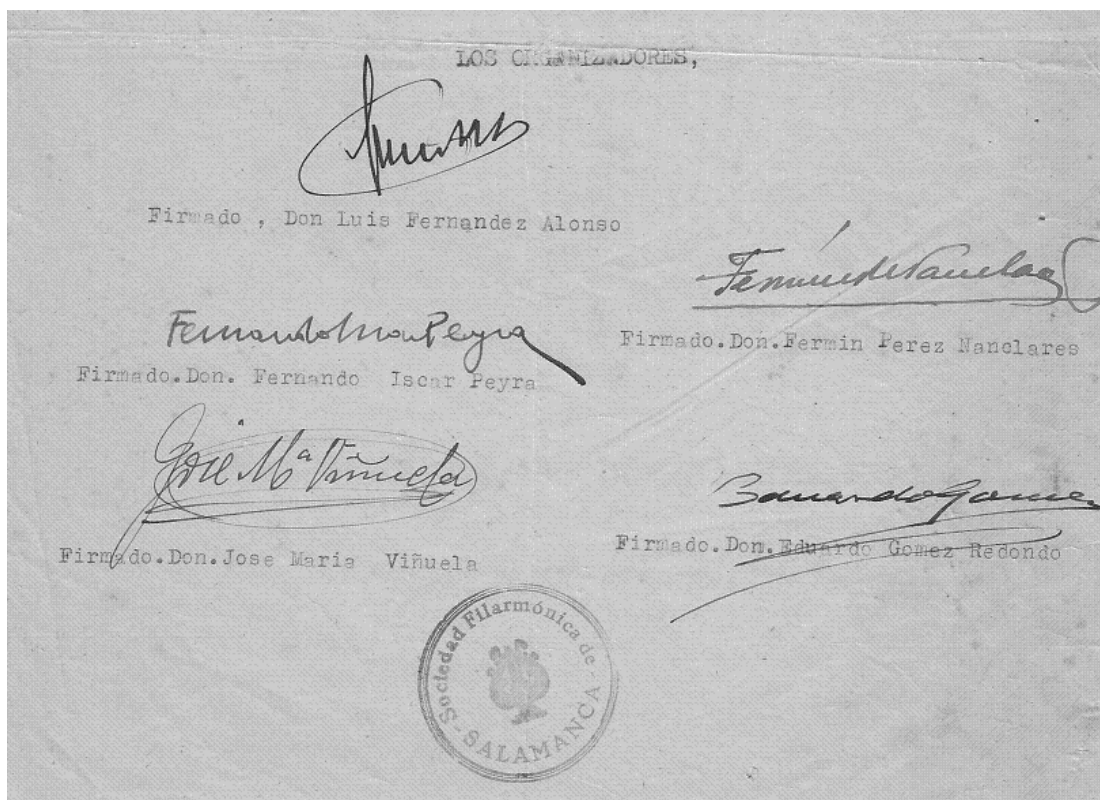 LOS ORGANIZADORES,
Firmado , Don Luis Fernandez Alonso
Firmado.Don.Fermin Perez Nanclares
Fernando Iscar Peyra
Firmado.Don. Fernando Iscar Peyra
José Mª Viñuela
Eduardo Gomez
Firmado.Don.Jose Maria Viñuela
Firmado.Don.Eduardo Gomez Redondo
Sociedad Filarmónica de
-SALAMANCA-